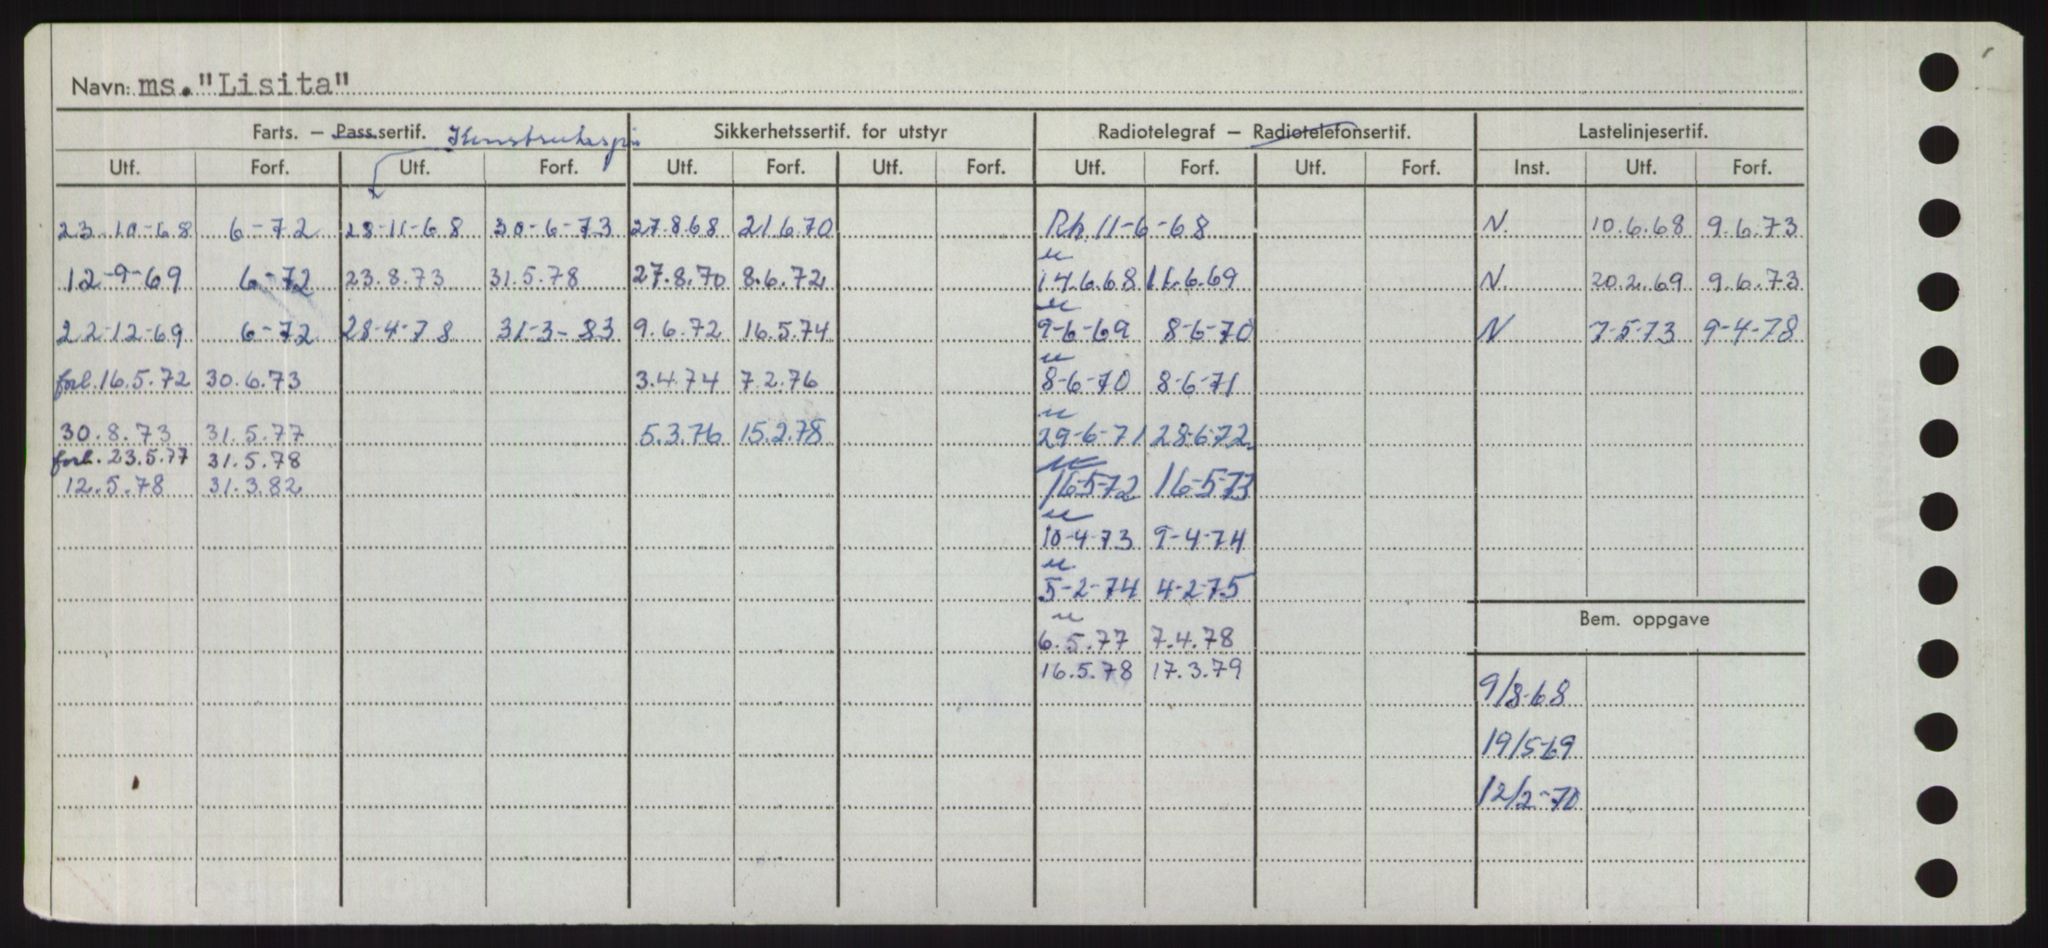 Navn: ms. "Lisita"
Farts. – Pass.sertif. Sikkerhetssertif. for utstyr Radiotelegraf – Radiotelefonsertif. Lastelinjesertif.
Utf. Forf. Utf. Forf. Utf. Forf. Utf. Forf. Utf. Forf. Utf. Forf. Inst. Utf. Forf.
23-10-68 6-72 28-11-68 30-6-73 27.8.68 21.6.70 11-6-68 N. 10.6.68 9.6.73
12-9-69 6-72 23.8.73 31.5.78 27.8.70 8.6.72 14.6.68 11.6.69 N. 20.2.69 9.6.73
22-12-69 6-72 28-4-78 31-3-83 9.6.72 16.5.74 9-6-69 8-6-70 N 7-5-73 9-4-78
forl. 16.5.72 30.6.73 3.4.74 7.2.76 8-6-70 8-6-71
30.8.73 31.5.77 5.3.76 15.2.78 29-6-71 28-6-72
forl. 23.5.77 31.5.78
12.5.78 31.3.82 16-5-72 16-5-73
10-4-73 9-4-74
5-2-74 4-2-75
Bem. oppgave
6.5.77 7.4.78
16.5.78 17.3.79
9/8-68
19/5-69
12/2-70